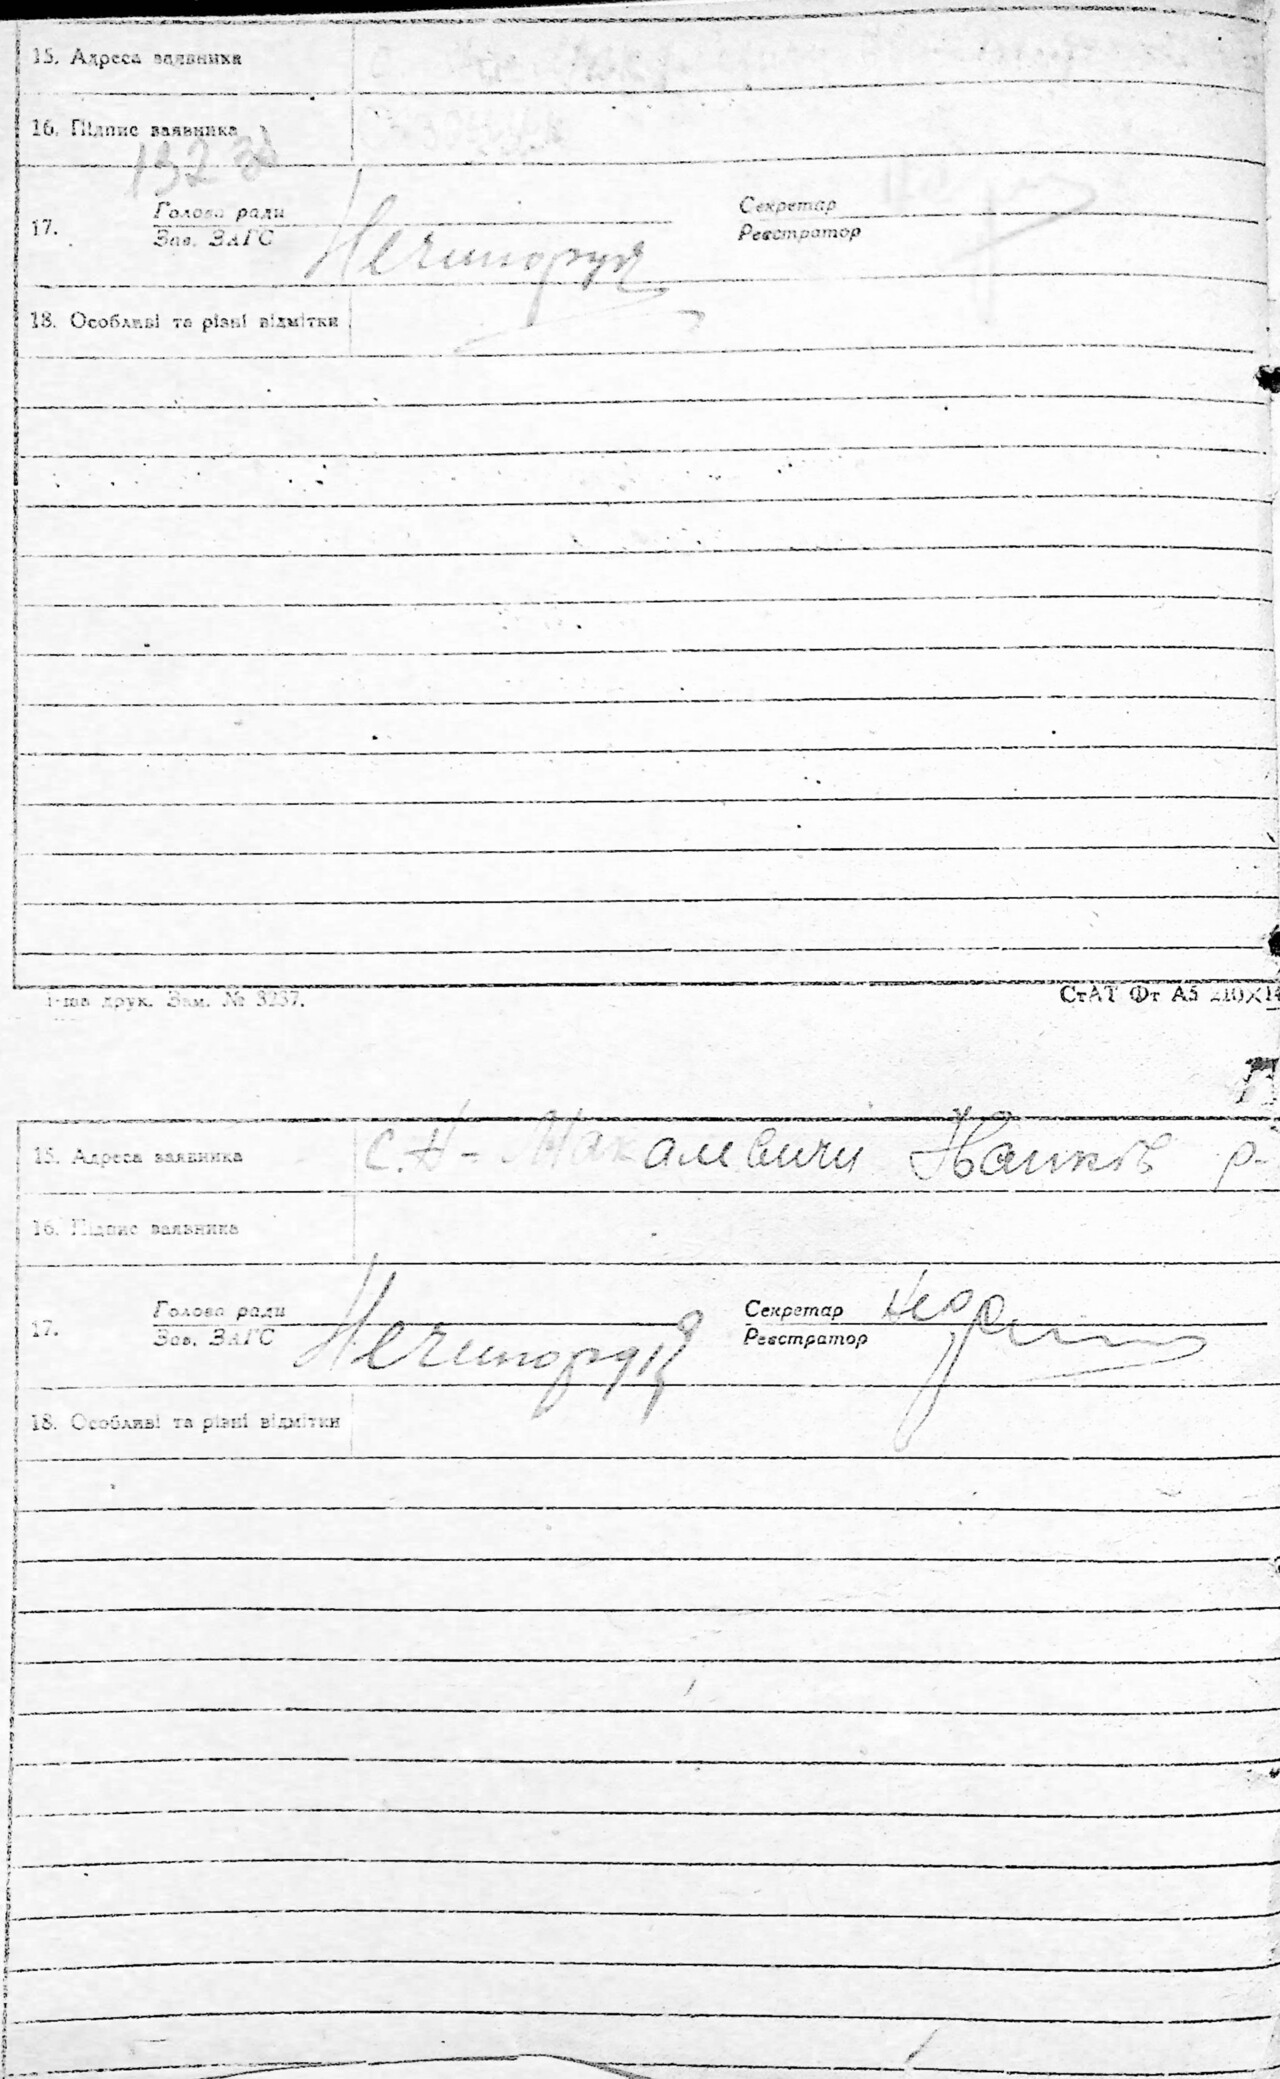 15. Адреса заявника
16. Підпис заявника
132
17. Голова ради
Зав. ЗАГС
Нечипорук
Секретар
Реєстратор
18. Особливі та різні відмітки
друк. Зам. № 3237.
СтАТ Фт А5 210×14
15. Адреса заявника с. Н- Макалевичи р-
16. Підпис заявника
17. Голова ради
Зав. ЗАГС
Нечипорук
Секретар
Реєстратор
18. Особливі та різні відмітки